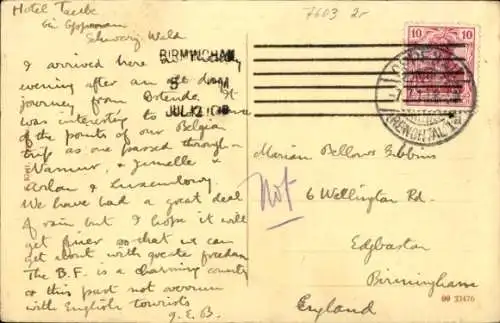 Hotel Taube
bei Oppenau
Schwarz Wald
I arrived here
evening after an all day
journey from Ostende. It
was interesting to
of the points of our Belgian
trip as one passed through
Namur, & Jemelle &
Arlon & Luxembourg.
We have had a great deal
of rain but I hope it will
get finer so that we can
get about with greater freedom
The B.F. is a charming country
& this part not overrun
with English tourists
G.E.B.
7603
BIRMINGHAM
JUL 12
10 10
RENCHTAL
Marian Bellows Gibbins
6 Wellington Rd.
Edgbaston
Birmingham
England
Not
00 23476